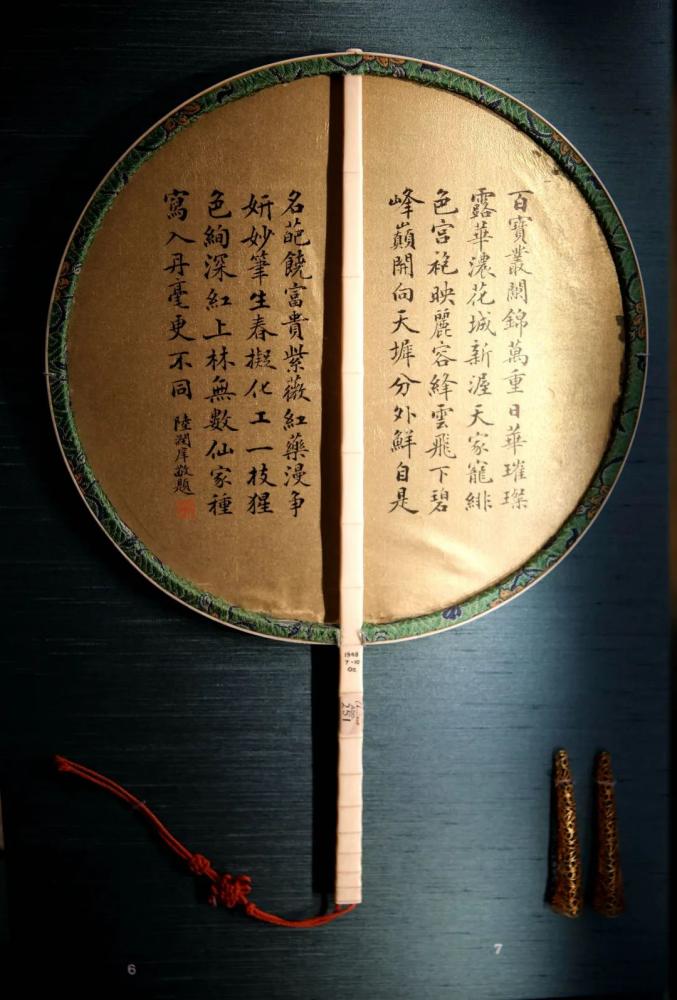 百寶叢闌錦萬重日華璀璨
露華濃花城新渥天家寵緋
色宮袍映麗容絳雲飛下碧
峰巔開向天墀分外鮮自是
名葩饒富貴紫薇紅藥漫爭
妍妙筆生春擬化工一枝猩
色絢深紅上林無數仙家種
寫入丹毫更不同
陸潤庠敬題
1948
7-10
02
251
6
7